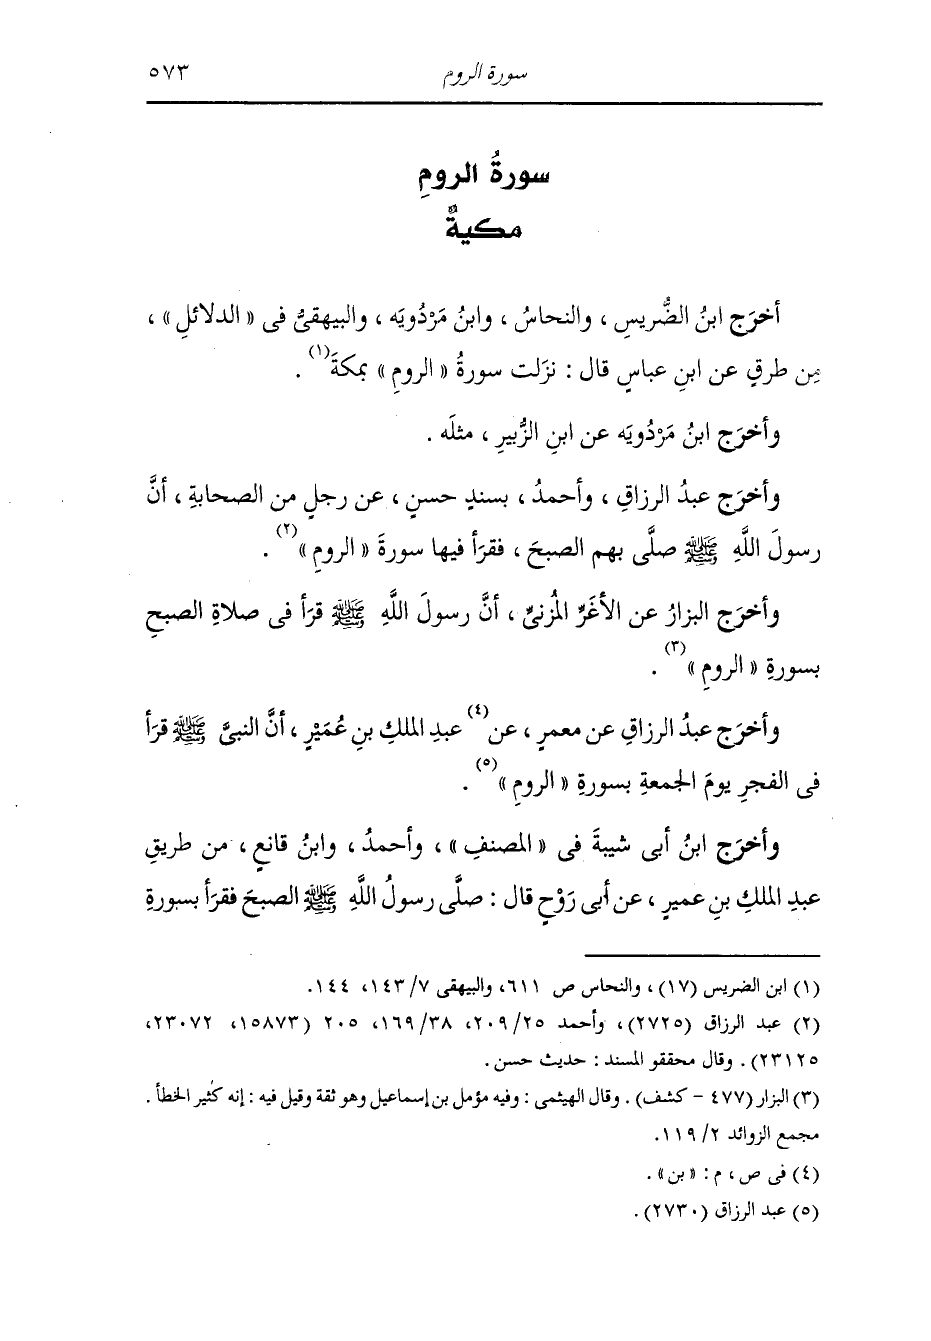 سورة الروم ٥٧٣
سورةُ الرومِ
مكيةٌ
أخرَج ابنُ الضُّريسِ ، والنحاسُ ، وابنُ مَرْدُويَه ، والبيهقىُّ فى « الدلائلِ » ،
مِن طرقٍ عن ابنِ عباسٍ قال : نزَلت سورةُ « الرومِ » بمكةَ(١) .
وأخرَج ابنُ مَرْدُويَه عن ابنِ الزُّبيرِ ، مثلَه .
وأخرَج عبدُ الرزاقِ ، وأحمدُ ، بسندٍ حسنٍ ، عن رجلٍ من الصحابةِ ، أنَّ
رسولَ اللَّهِ ﷺ صلَّى بهم الصبحَ ، فقرَأ فيها سورةَ « الرومِ »(٢) .
وأخرَج البزارُ عن الأغَرِّ المُزنىِّ ، أنَّ رسولَ اللَّهِ ﷺ قرَأ فى صلاةِ الصبحِ
بسورةِ « الرومِ »(٣) .
وأخرَج عبدُ الرزاقِ عن معمرٍ ، عن(٤) عبدِ الملكِ بنِ عُمَيْرٍ ، أنَّ النبىَّ ﷺ قرَأ
فى الفجرِ يومَ الجمعةِ بسورةِ « الرومِ »(٥) .
وأخرَج ابنُ أبى شيبةَ فى « المصنفِ » ، وأحمدُ ، وابنُ قانعٍ ، من طريقِ
عبدِ الملكِ بنِ عميرٍ ، عن أبى رَوْحٍ قال : صلَّى رسولُ اللَّهِ ﷺ الصبحَ فقرَأ بسورةِ
(١) ابن الضريس (١٧) ، والنحاس ص ٦١١، والبيهقى ٧/ ١٤٣، ١٤٤.
(٢) عبد الرزاق (٢٧٢٥) ، وأحمد ٢٥/ ٢٠٩، ٣٨/ ١٦٩، ٢٠٥ (١٥٨٧٣، ٢٣٠٧٢،
٢٣١٢٥) . وقال محققو المسند : حديث حسن .
(٣) البزار (٤٧٧ - كشف) . وقال الهيثمى : وفيه مؤمل بن إسماعيل وهو ثقة وقيل فيه : إنه كثير الخطأ .
مجمع الزوائد ٢/ ١١٩.
(٤) فى ص ، م : « بن » .
(٥) عبد الرزاق (٢٧٣٠) .